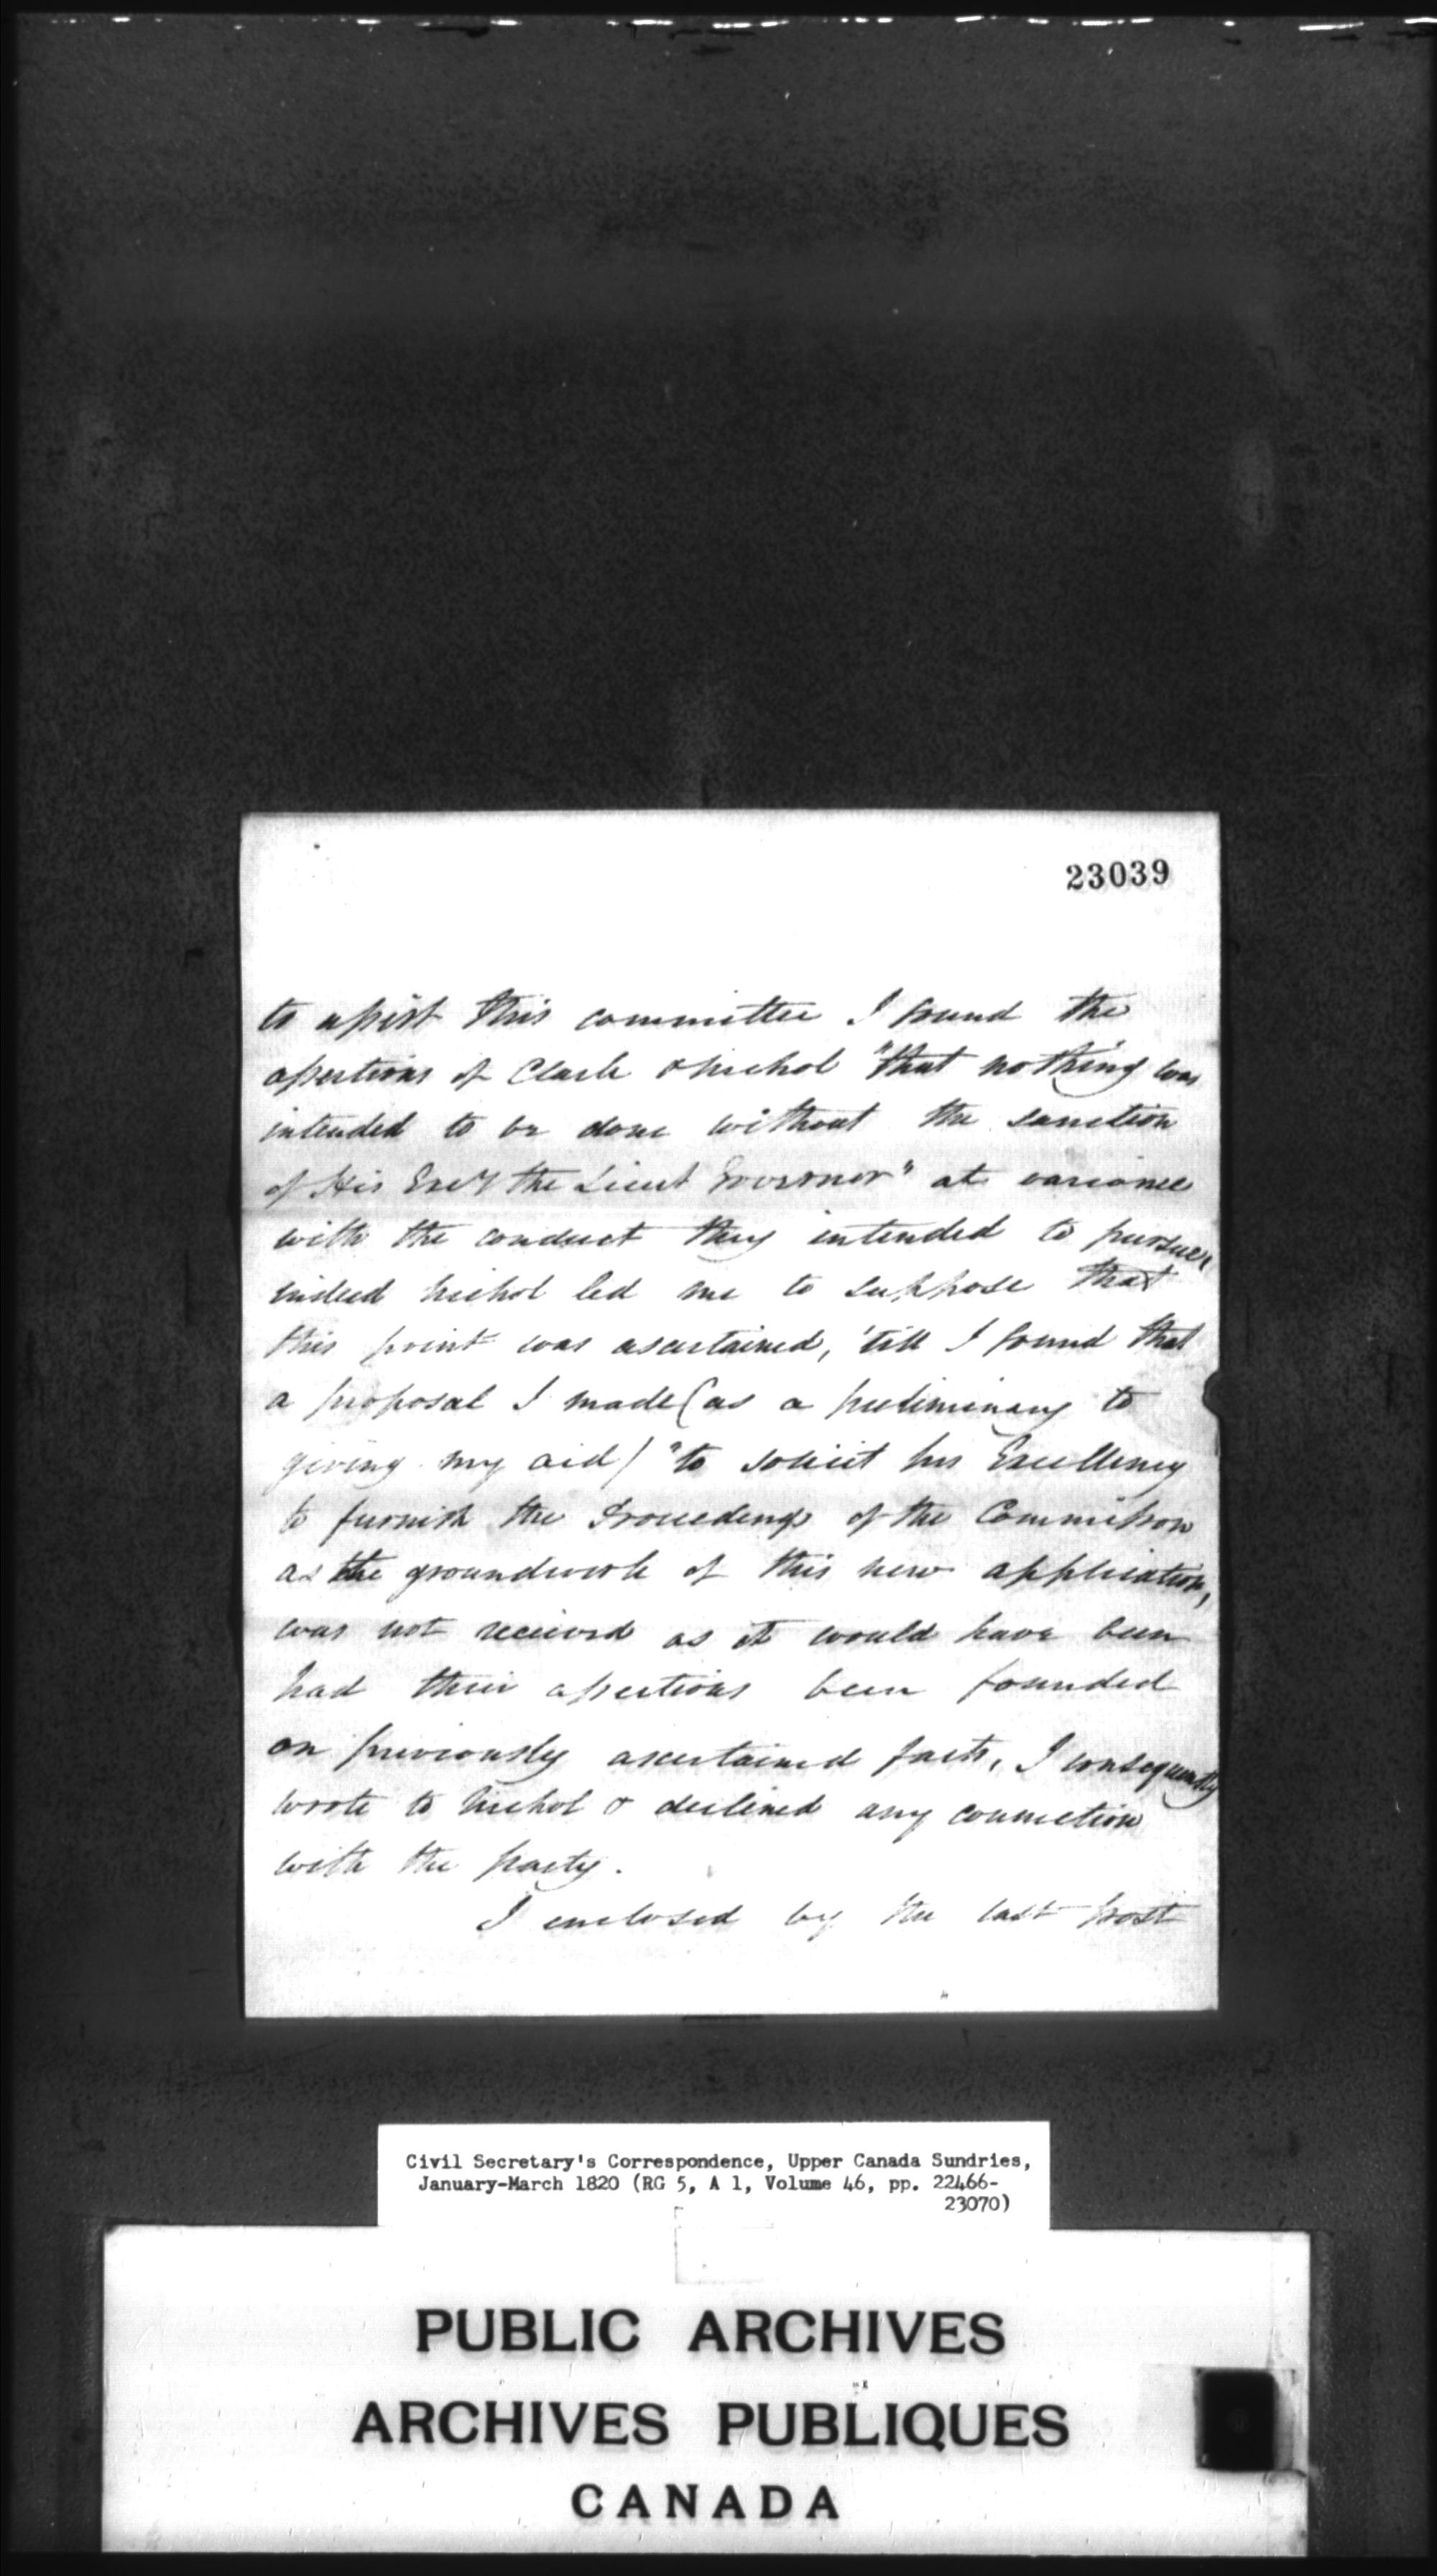 23039
to assist this committee I found the
assertions of Clark & Nichol "that nothing was
intended to be done without the sanction
of His Excy the Lieut Governor" at variance
with the conduct they intended to pursue,
indeed Nichol led me to suppose that
this point was ascertained, 'till I found that
a proposal I made (as a preliminary to
giving my aid) "to solicit his Excellency
to furnish the Proceedings of the Commission
as the groundwork of this new application,
was not received as it would have been
had their assertions been founded
on previously ascertained facts, I consequently
wrote to Nichol & declined any connection
with the party.
I enclosed by the last post
Civil Secretary's Correspondence, Upper Canada Sundries,
January-March 1820 (RG 5, A 1, Volume 46, pp. 22466-
23070)
PUBLIC ARCHIVES
ARCHIVES PUBLIQUES
CANADA